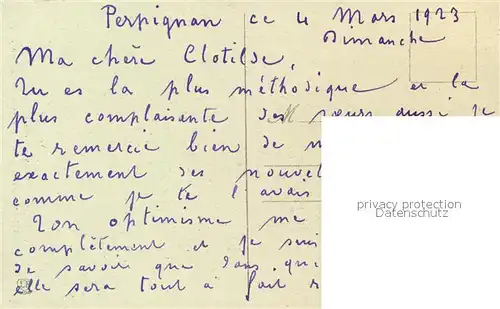 Perpignan ce 4 Mars 1923
Dimanche
Ma chère Clotilde,
Tu es la plus méthodique et la
plus complaisante des sœurs aussi je
te remercie bien de m
exactement des nouvel
comme je te l'avais
Ton optimisme me
complètement et je suis
de savoir que dans qu
elle sera tout à fait r
privacy protection
Datenschutz